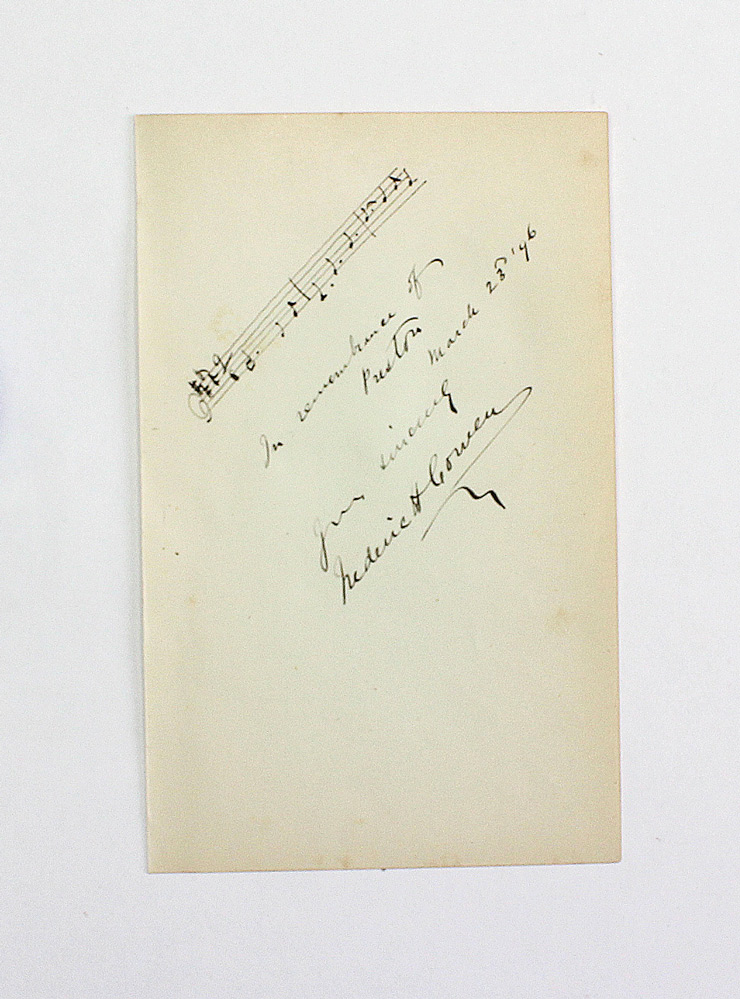 In remembrance of
Preston
March 23rd '96
Yrs sincerely
Frederic H Cowen